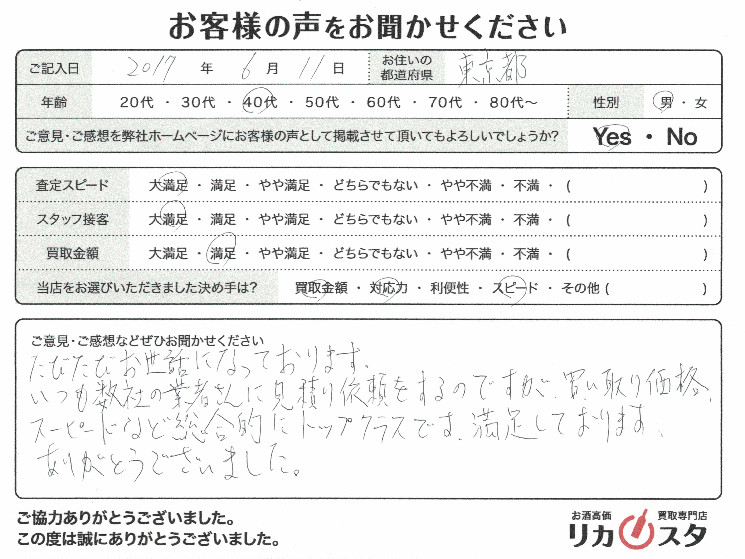 お客様の声をお聞かせください
ご記入日 2017 年 6 月 11 日 お住いの都道府県 東京都
年齢 20代 ・ 30代 ・ 40代 ・ 50代 ・ 60代 ・ 70代 ・ 80代〜 性別 男 ・ 女
ご意見・ご感想を弊社ホームページにお客様の声として掲載させて頂いてもよろしいでしょうか? Yes ・ No
査定スピード 大満足 ・ 満足 ・ やや満足 ・ どちらでもない ・ やや不満 ・ 不満 ・ ( )
スタッフ接客 大満足 ・ 満足 ・ やや満足 ・ どちらでもない ・ やや不満 ・ 不満 ・ ( )
買取金額 大満足 ・ 満足 ・ やや満足 ・ どちらでもない ・ やや不満 ・ 不満 ・ ( )
当店をお選びいただきました決め手は? 買取金額 ・ 対応力 ・ 利便性 ・ スピード ・ その他 ( )
ご意見・ご感想などぜひお聞かせください
たびたびお世話になっております。
いつも数社の業者さんに見積り依頼をするのですが、買い取り価格、
スーピードなど総合的にトップクラスです。満足しております。
ありがとうございました。
ご協力ありがとうございました。
この度は誠にありがとうございました。
お酒高価 買取専門店
リカスタ